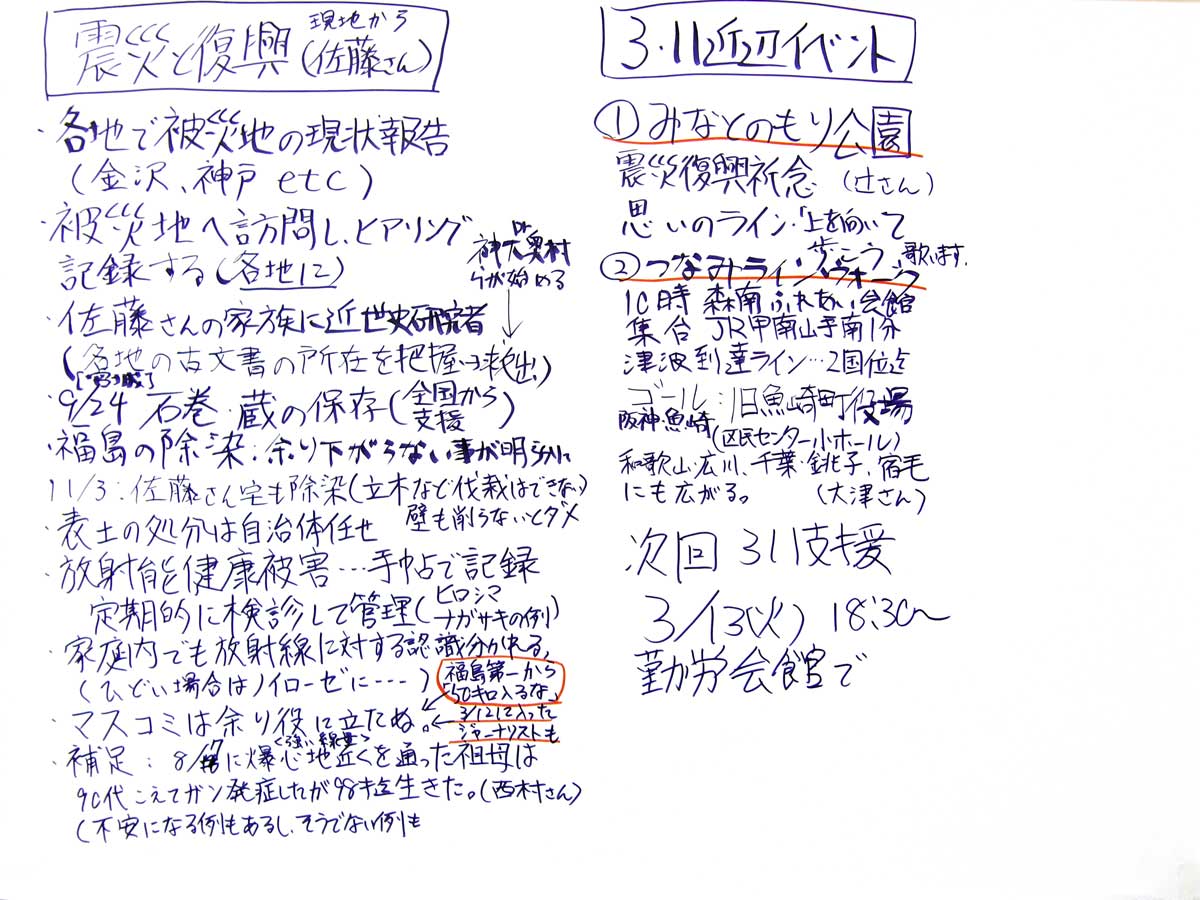 震災と復興
現地から
(佐藤さん)
・各地で被災地の現状報告
(金沢、神戸 etc)
・被災地へ訪問し、ヒアリング
記録する(各地に)
神大奥村
らが始める
・佐藤さんの家族に近世史研究者
(各地の古文書の所在を把握→救出)
9/24 石巻・蔵の保存(全国から
支援)
・福島の除染:余り下がらない事が明らかに
11/3:佐藤さん宅も除染(立木など伐栽はできない)
壁も削らないとダメ
・表土の処分は自治体任せ
・放射能と健康被害…手帖で記録
定期的に検診して管理(ヒロシマ
ナガサキの例)
・家庭内でも放射線に対する認識分かれる。
(ひどい場合はノイローゼに・・・・)
福島第一から
「50キロ入るな」
・マスコミは余り役に立たぬ。
3/12に入った
ジャーナリストも
<強い線量>
・補足: 8/7に爆心地近くを通った祖母は
90代こえてガン発症したが98才迄生きた。(西村さん)
(不安になる例もあるし、そうでない例も
3・11近辺イベント
①みなとのもり公園
震災復興祈念 (辻さん)
思いのライン・「上を向いて
歩こう 歌います.
②つなみトライングウォーク
10時 森南ふれあい会館
集合 JR甲南山手南1分
津波到達ライン…2国位迄
ゴール:旧魚崎町役場
阪神・魚崎
(区民センター小ホール)
和歌山・広川、千葉・銚子、宿毛
にも広がる。 (大津さん)
次回 311支援
3/13(火) 18:30〜
勤労会館で